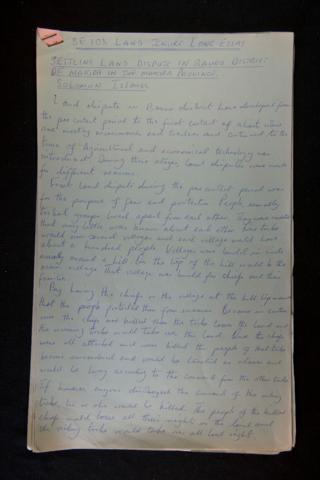 SE 103 LAND TENURE LONG ESSAY
SETTLING LAND DISPUTE IN BAURO DISTRICT
DE MAKIRA IN THE MAKIRA PROVINCE,
SOLOMON ISLANDS
Land dispute in Bauro district have developed from
the pre contact period to the first contact of
and meeting missionaries and traders and continued to the
time of Agricultural and economical technology was
introduced. During these stages, land disputes were made
for different reasons.
Firstly land dispute during the pre contact period was
for the purpose of fear and protection. People, namely
tribal groups lived apart from each other. They were
that very little was known about each other. Each tribe
would own several villages and each village would have
about a hundred people. Villages were built
usually around a hill. On the top of the hill would be the
main village. That village was build for chiefs and their
families.
By having the chiefs in the village at the hill top
that the people protected them from enemies. Because in
war the chiefs are killed then the tribe loses the land and
the winning tribe would take over the land. Once the chiefs
were all attacked and were killed the people of that tribe
become surrendered and would be treated as slaves and
would be living according to the command from the other tribe.
If however anyone disobeyed the command of the ruling
tribe, he or she would be killed. The people of the killed
chiefs would loose all their rights on the land and
the ruling tribe would take over all land rights.